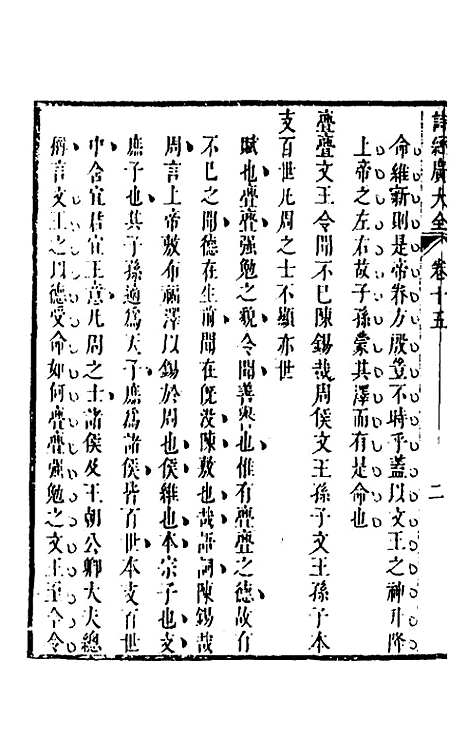 詩經廣大全 卷十五 二
命維新則是帝眷方殷豈不時乎蓋以文王之神升降
上帝之左右故子孫蒙其澤而有是命也
亹亹文王令聞不已陳錫哉周侯文王孫子文王孫子本
支百世凡周之士不顯亦世
賦也亹亹强勉之貌令聞善譽也惟有亹亹之德故有
不已之聞德在生前聞在旣沒陳敷也哉語詞陳錫哉
周言上帝敷布福澤以錫於周也侯維也本宗子也支
庶子也其子孫適爲天子庶爲諸侯皆百世本支百世
中含宜君宜王意凡周之士諸侯及王朝公卿大夫總
稱言文王之以德受命如何亹亹强勉之文王至今令